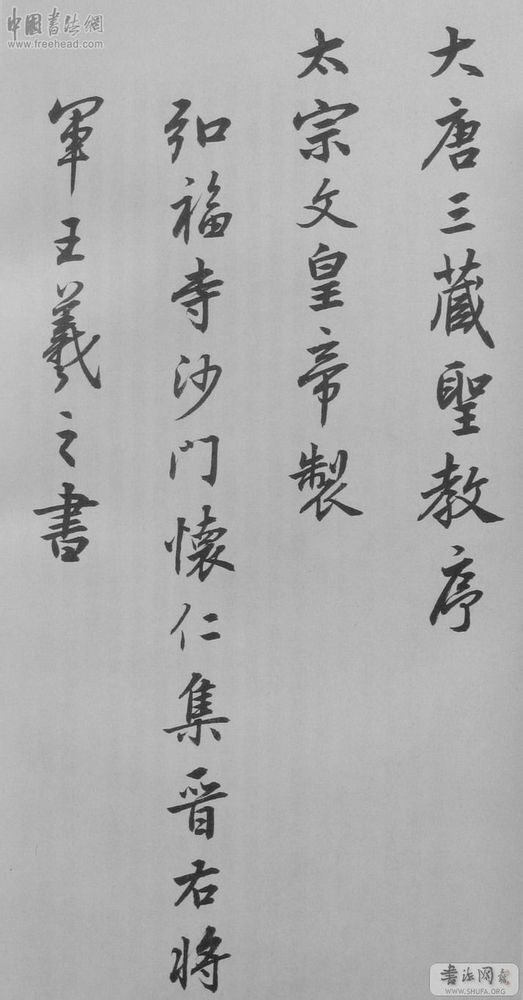 大唐三藏聖教序
太宗文皇帝製
弘福寺沙門懷仁集晉右將
軍王羲之書
中国书法網
www.freehead.com
书法网
WWW.SHUFA.ORG